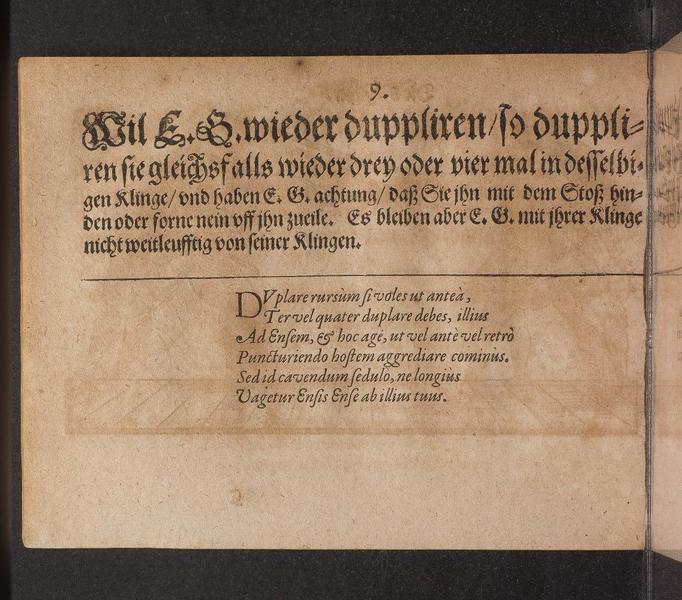 9.
Wil E. G. wieder duppliren/ so duppli-
ren sie gleichsfalls wieder drey oder vier mal in desselbi-
gen Klinge/ vnd haben E. G. achtung/ daß Sie jhn mit dem Stoß hin-
den oder forne nein vff jhn zueile. Es bleiben aber E. G. mit jhrer Klinge
nicht weitleufftig von seiner Klingen.
DVplare rursùm si voles ut anteà,
Ter vel quater duplare debes, illius
Ad Ensem, & hoc age, ut vel antè vel retrò
Puncturiendo hostem aggrediare cominùs.
Sed id cavendum sedulò, ne longiùs
Vagetur Ensis Ense ab illius tuus.